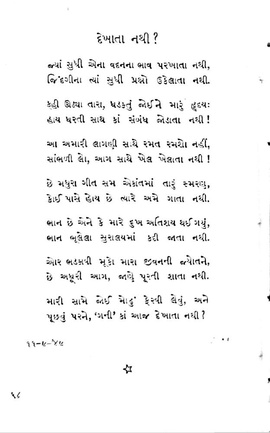 દેખાતા નથી ?
જ્યાં સુધી એના વદનના ભાવ પરખાતા નથી,
જિંદગીના ત્યાં સુધી પ્રશ્નો ઉકેલાતા નથી!
કહી ઊઠ્યા તારા, ધડકતું જોઈને મારું હૃદયઃ
હાય ધરતી સાથ કાં સંબંધ જોડાતા નથી!
આ અમારી લાગણી સાથે રમત રમશો નહીં,
સાંભળી લો, આગ સાથે ખેલ ખેલાતા નથી!
છે મધુરા ગીત સમ એકાંતમાં તારું સ્મરણ,
કોઈ પાસે હોય છે ત્યારે અમે ગાતા નથી.
ભાન છે એને કે મારે દુખ અતિશય થઈ ગયું,
ભાન ભૂલેલા સુરાલયમાં કદી જાતા નથી.
ઓર ભડકાવી મૂકો મારા જીવનની જ્યોતને,
છે અધૂરી આગ, જાણે પૂરતી શાતા નથી.
મારી સામે જોઈ મોઢું ફેરવી લેવું, અને
પૂછવું પરને, ‘ગની’ કાં આજ દેખાતા નથી?
૧૧-૯-’૪૯
૬૮